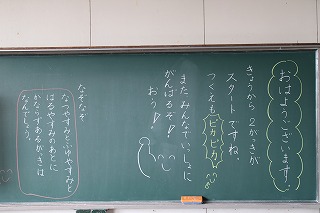 おはようございます。
きょうから 2がっきが
スタートですね。
つくえも ピカピカ
また みんなで いっしょに
がんばるぞ!
おう!
なぞなぞ
なつやすみと ふゆやすみと
はるやすみの あとに
かならずある がっきは
なんでしょう。